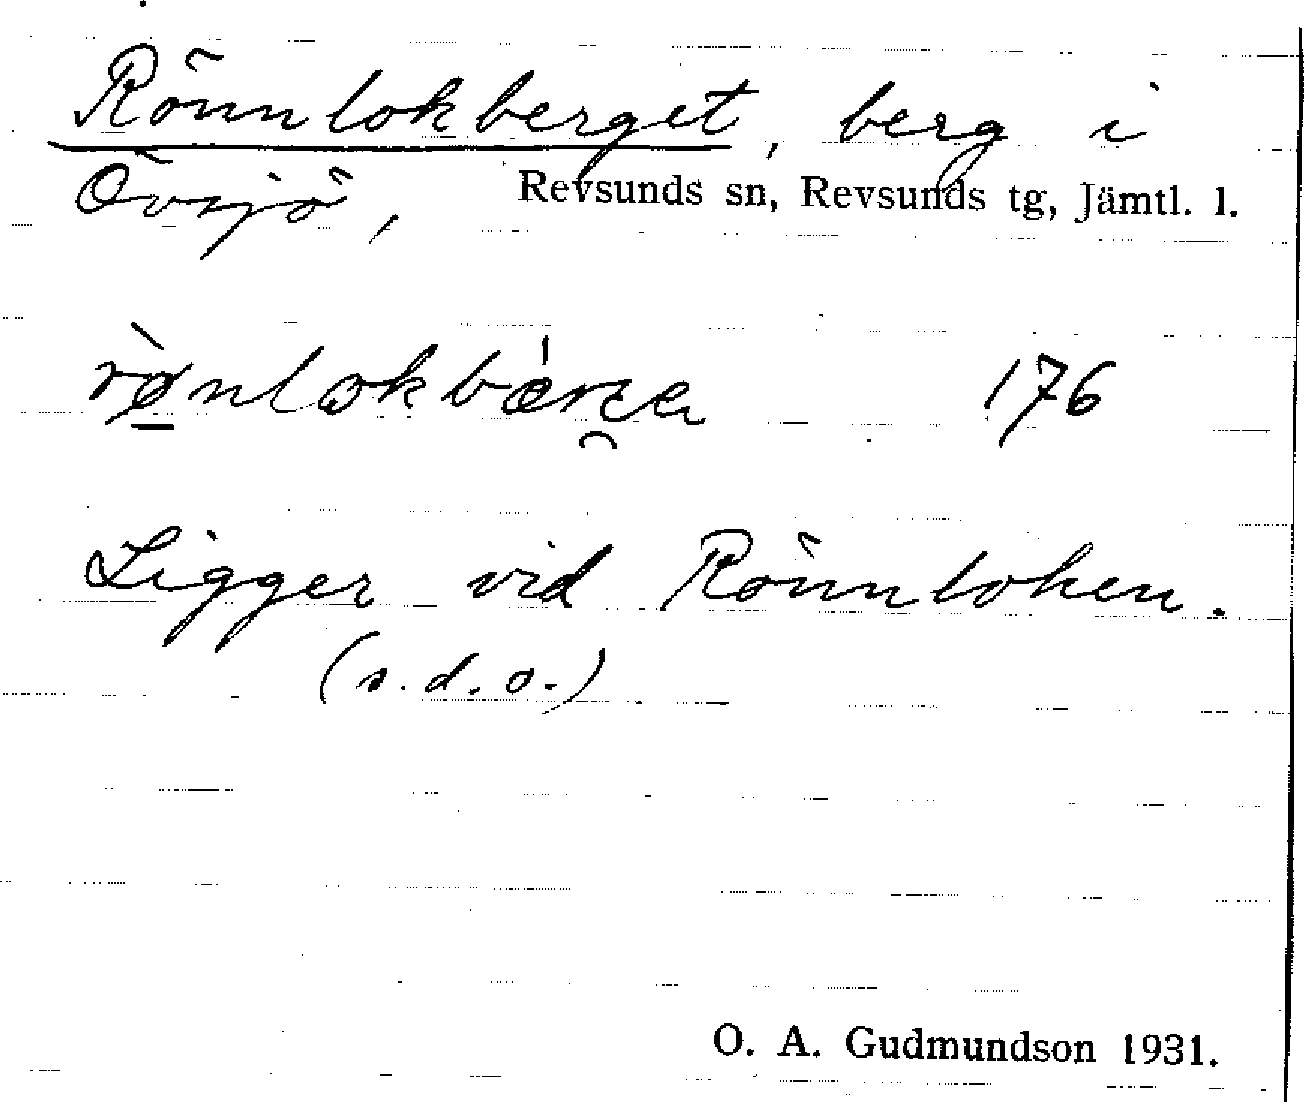 Rönnlokberget, berg i
Övsjö, Revsunds sn, Revsunds tg, Jämtl. l.
176
Ligger vid Rönnloken.
(s.d.o.)
O. A. Gudmundson 1931.